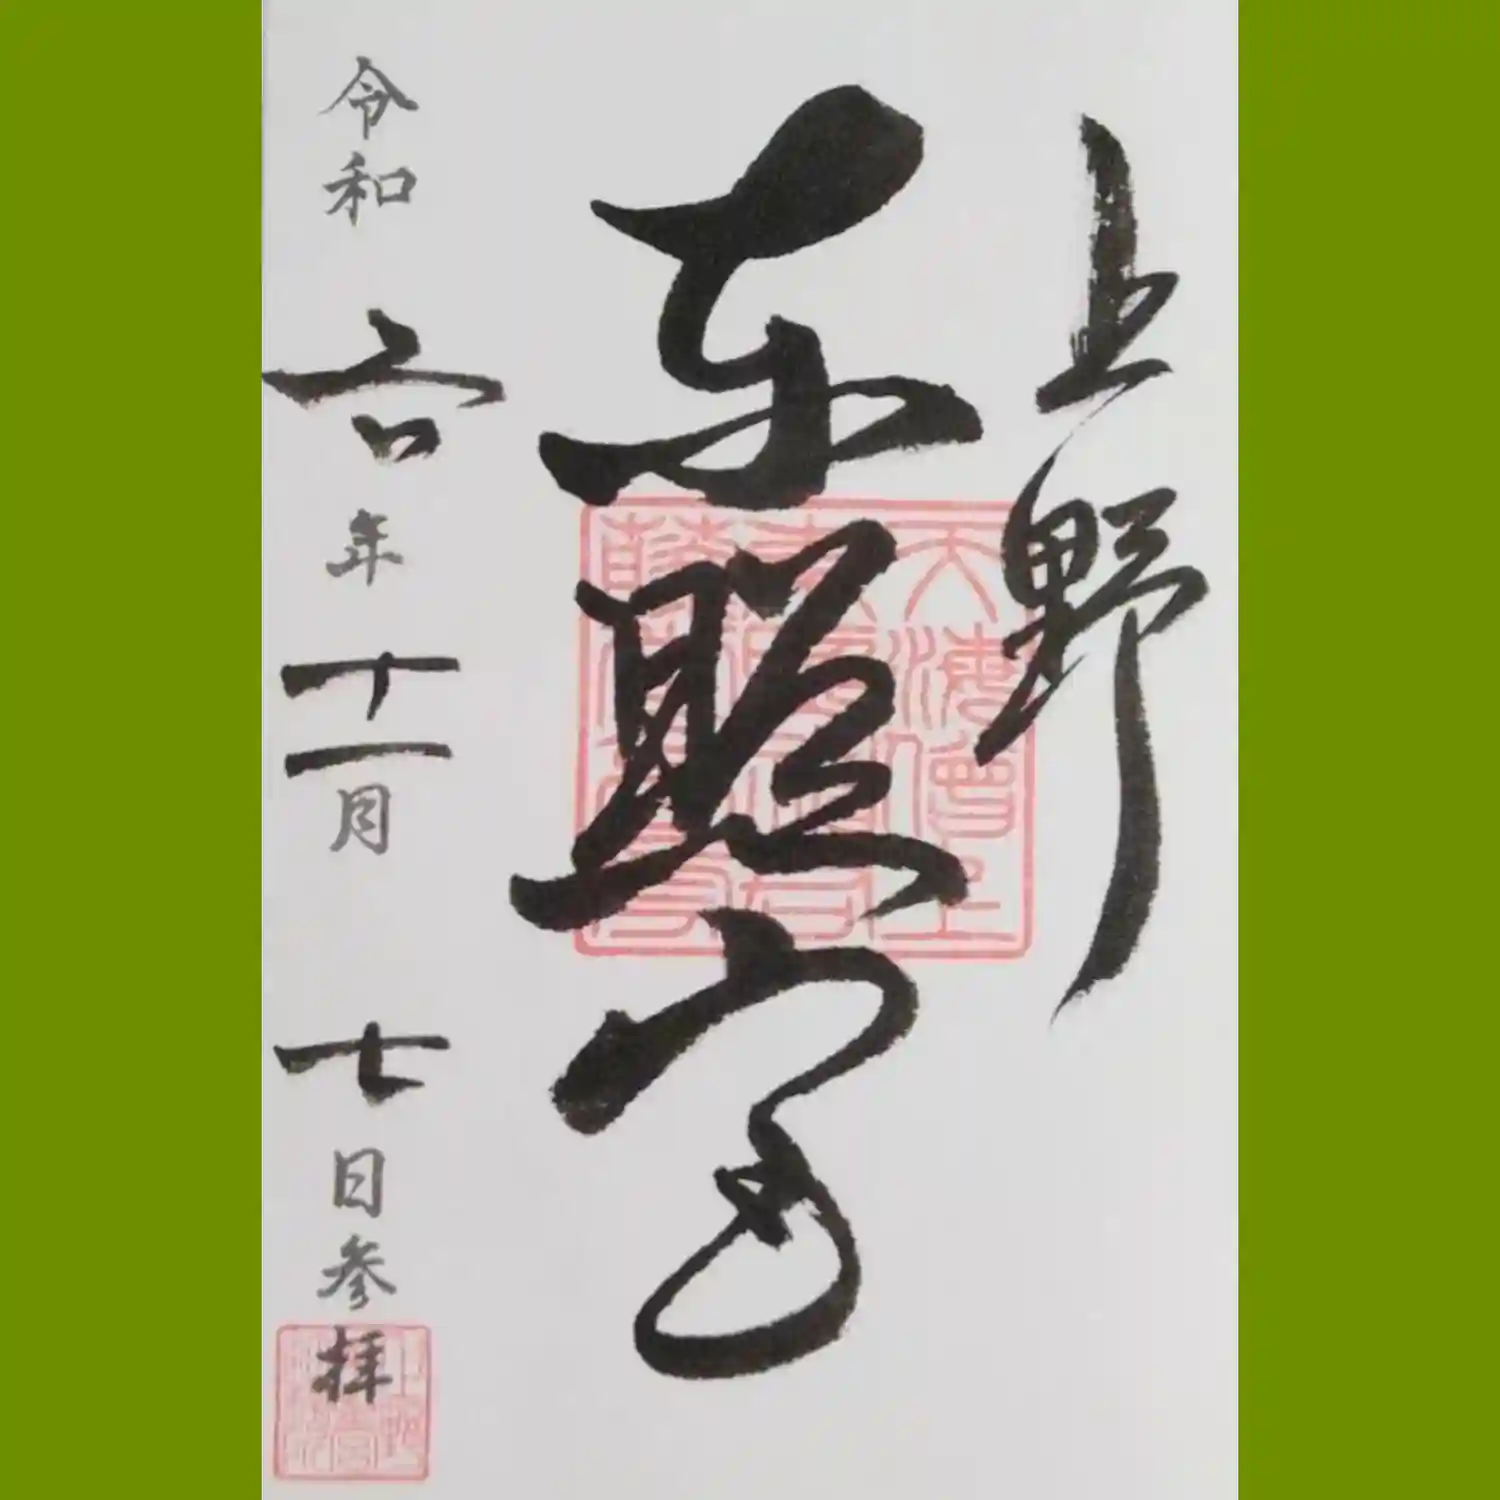 上野
東照宮
令和六年十一月七日参拝